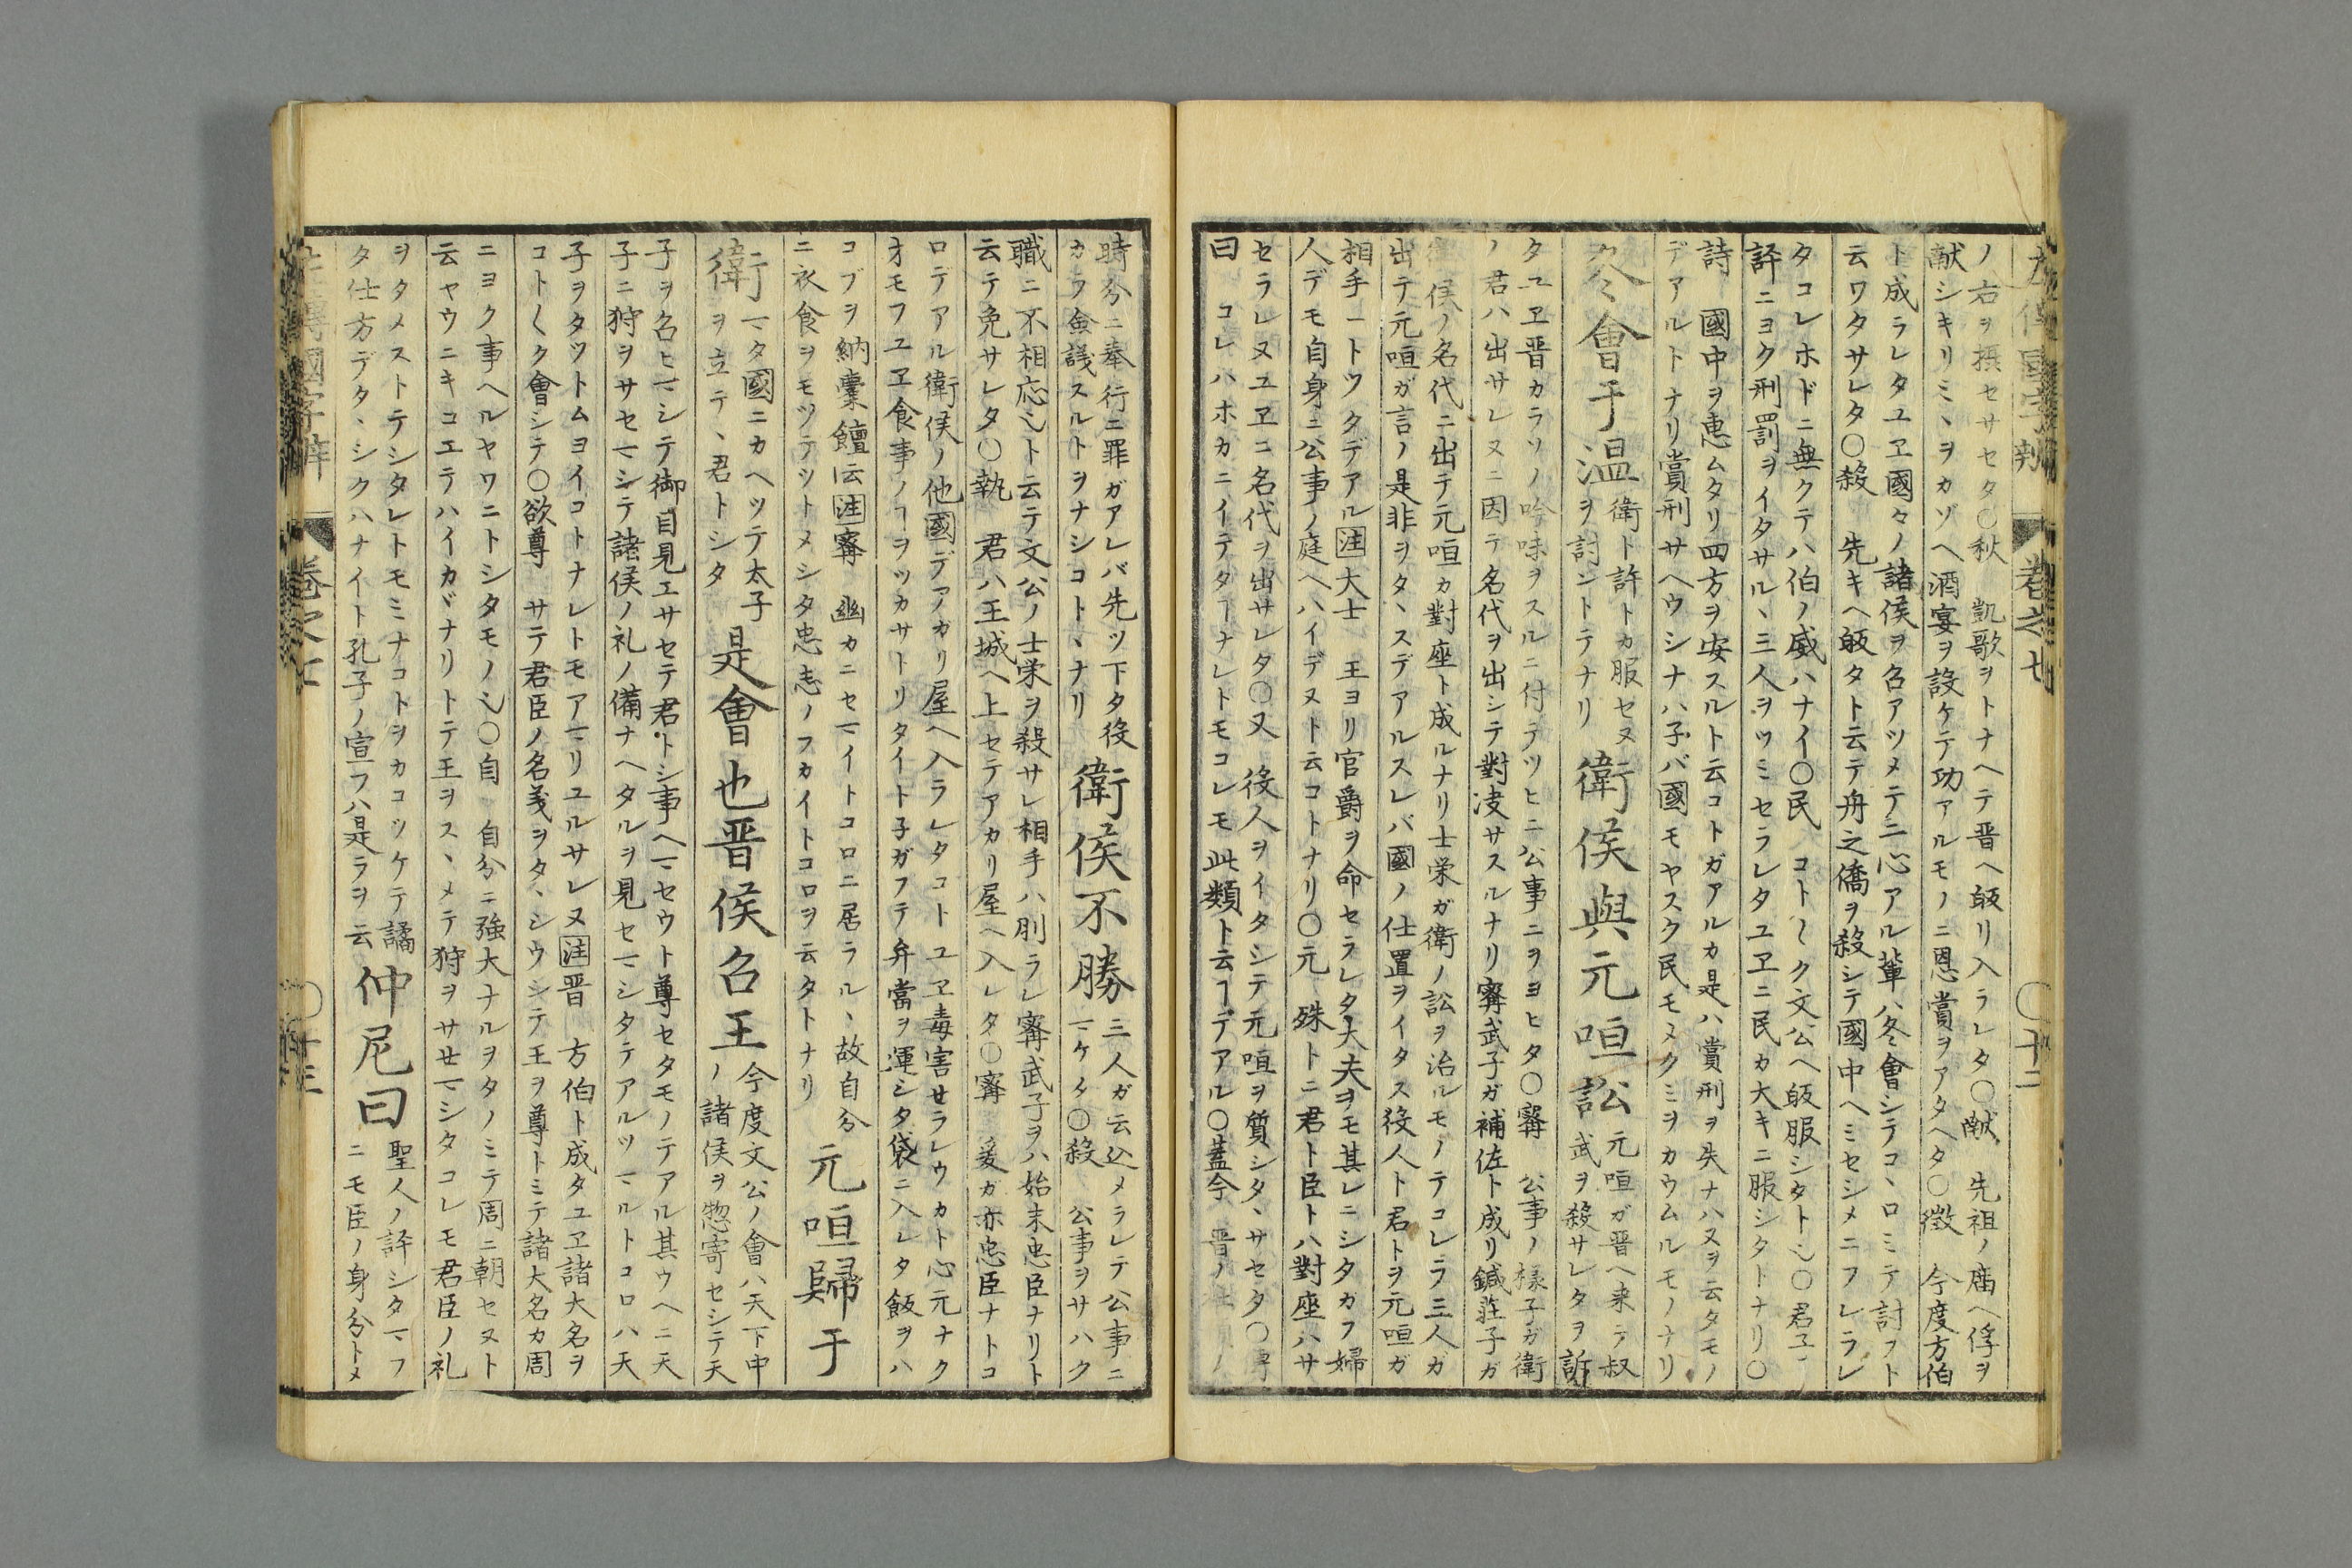 ノ右ヲ摂セサセタ〇秋　凱歌ヲトナヘテ晋ヘ皈リ入ラレタ〇献　先祖ノ庿ヘ俘ヲ
献シキリミヽヲカゾヘ酒宴ヲ設ケテ功アルモノニ恩賞ヲアタヘタ〇徴　今度方伯
ト成ラレタユヱ國々ノ諸侯ヲ召アツメテ二心アル輩ハ冬會シテコヽロミテ討フト
云ワタサレタ〇殺　先キヘ皈タト云テ舟之僑ヲ殺シテ國中ヘミセシメニフレラレ
タコレホドニ無クテハ伯ノ威ハナイ〇民　コト〱ク文公ヘ皈服シタト也〇君子ノ
評ニヨク刑罰ヲイタサルヽ三人ヲツミセラレタユヱニ民カ大キニ服シタトナリ〇
詩　國中ヲ恵ムタリ四方ヲ安スルト云コトガアルカ是ハ賞刑ヲ失ナハヌヲ云タモノ
デアルトナリ賞刑サヘウシナハ子バ國モヤスク民モヌクミヲカウムルモノナリ
冬會于温
衛ト許トカ服セヌ
ヲ討ントテナリ
衛侯與元咺訟
元咺ガ晋ヘ来テ叔
武ヲ殺サレタヲ訴
タユヱ晋カラソノ吟味ヲスルニ付テツヒニ公事ニヲヨヒタ〇甯　公事ノ様子ガ衛
ノ君ハ出サレヌニ因テ名代ヲ出シテ對决サスルナリ甯武子ガ補佐ト成リ鍼荘子ガ
侯ノ名代ニ出テ元咺カ對座ト成ルナリ士栄ガ衛ノ訟ヲ治ルモノテコレラ三人ガ
出テ元咺ガ言ノ是非ヲタヽスデアルスレバ國ノ仕置ヲイタス役人ト君トヲ元咺ガ
相手一トツタデアル注大士　王ヨリ官爵ヲ命セラレタ大夫ヲモ其レニシタガフ婦
人デモ自身ニ公事ノ庭ヘハイデヌト云コトナリ〇元　殊トニ君ト臣トハ對座ハサ
セラレヌユヱニ名代ヲ出サレタ〇又　役人ヲイタシテ元咺ヲ質シタヽサセタ〇傳
曰　コレハホカニイテタヿナレトモコレモ此類ト云ヿデアル〇蓋今　晋ノ
時分ニ奉行ニ罪ガアレバ先ツ下タ役
カラ僉議スルトヲナシコトヽナリ
衛侯不勝
三人ガ云込メラレテ公事ニ
マケタ〇殺　公事ヲサハク
職ニ不相応也ト云テ文公ノ士栄ヲ殺サレ相手ハ刖ラレ甯武子ヲハ始末忠臣ナリト
云テ免サレタ〇執　君ハ王城ヘ上セテアカリ屋ヘ入レタ〇甯　爰ガ亦忠臣ナトコ
ロデアル衛侯ノ他國デアカリ屋ヘ入ラレタコトユヱ毒害セラレウカト心元ナク
オモフユヱ食事ノヿヲツカサトリタイト子ガフテ弁當ヲ運シタ袋ニ入レタ飯ヲハ
コブヲ納橐饘云注甯　幽カニセマイトコロニ居ラルヽ故自分
ニ衣食ヲモツテツトメシタ忠志ノフカイトコロヲ云タトナリ
元咺歸于
衛
マタ國ニカヘツテ太子
ヲ立テヽ君トシタ
是會也晋侯召王
今度文公ノ會ハ天下中
ノ諸侯ヲ惣寄セシテ天
子ヲ召ヒマシテ御目見エサセテ君トシ事ヘマセウト尊セタモノテアル其ウヘニ天
子ニ狩ヲサセマシテ諸侯ノ礼ノ備ナヘタルヲ見セマシタテアルツマルトコロハ天
子ヲタツトムヨイコトナレトモアマリユルサレヌ注晋　方伯ト成タユヱ諸大名ヲ
コト〱ク會シテ〇欲尊　サテ君臣ノ名義ヲタヽシウシテ王ヲ尊トミテ諸大名カ周
ニヨク事ヘルヤワニトシタモノ也〇自　自分ニ強大ナルヲタノミテ周ニ朝セヌト
云ヤウニキコエテハイカヾナリトテ王ヲスヽメテ狩ヲサセマシタコレモ君臣ノ礼
ヲタメストテシタレトモミナコトヲカコツケテ譎
タ仕方デタヽシクハナイト孔子ノ宣フハ是ラヲ云
仲尼曰
聖人ノ評シタマフ
ニモ臣ノ身分トメ